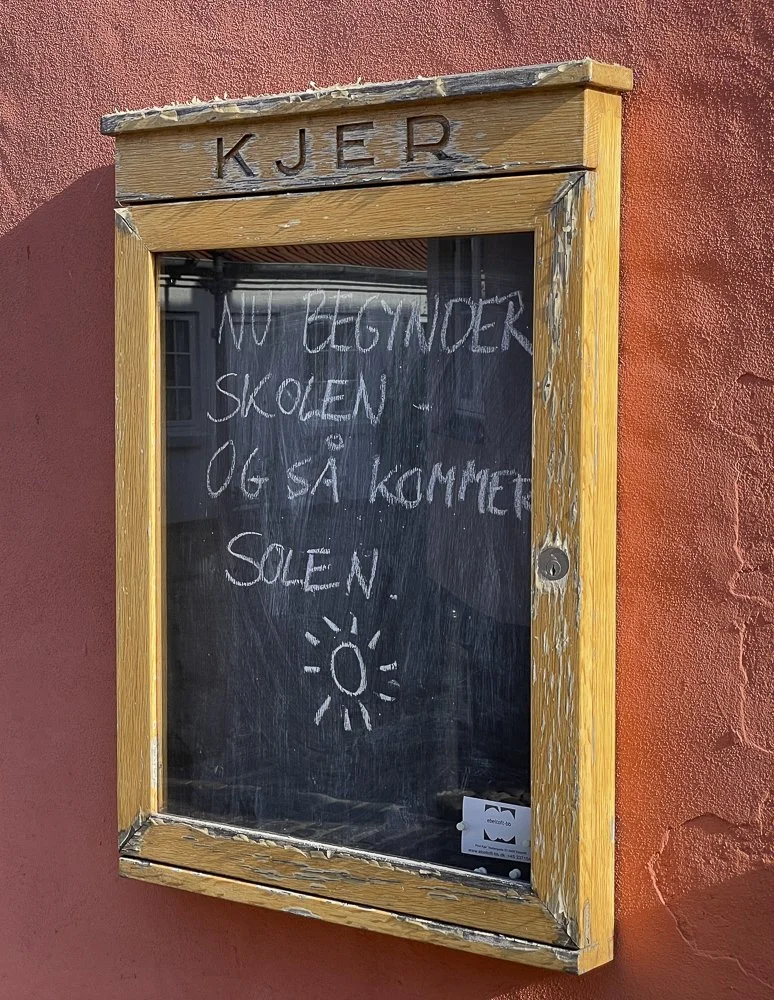 KJER
NU BEGYNDER
SKOLEN -
OG SÅ KOMMER
SOLEN.
ebeltoft-bb